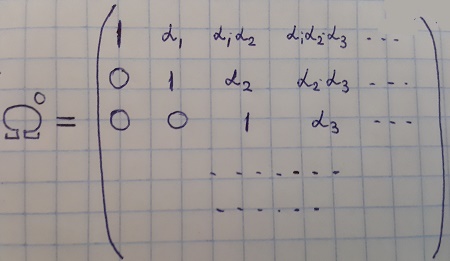 1 α₁ α₁·α₂ α₁·α₂·α₃ ...
0 1 α₂ α₂·α₃ ...
Ω⁰ = 0 0 1 α₃ ...
.......
......